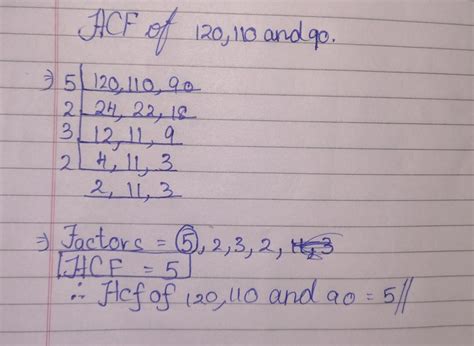 HCF of 120, 110 and 90.
⇒ 5 | 120, 110, 90
2 | 24, 22, 18
3 | 12, 11, 9
2 | 4, 11, 3
2, 11, 3
⇒ Factors = 5, 2, 3, 2,
HCF = 5
∴ Hcf of 120, 110 and 90 = 5//